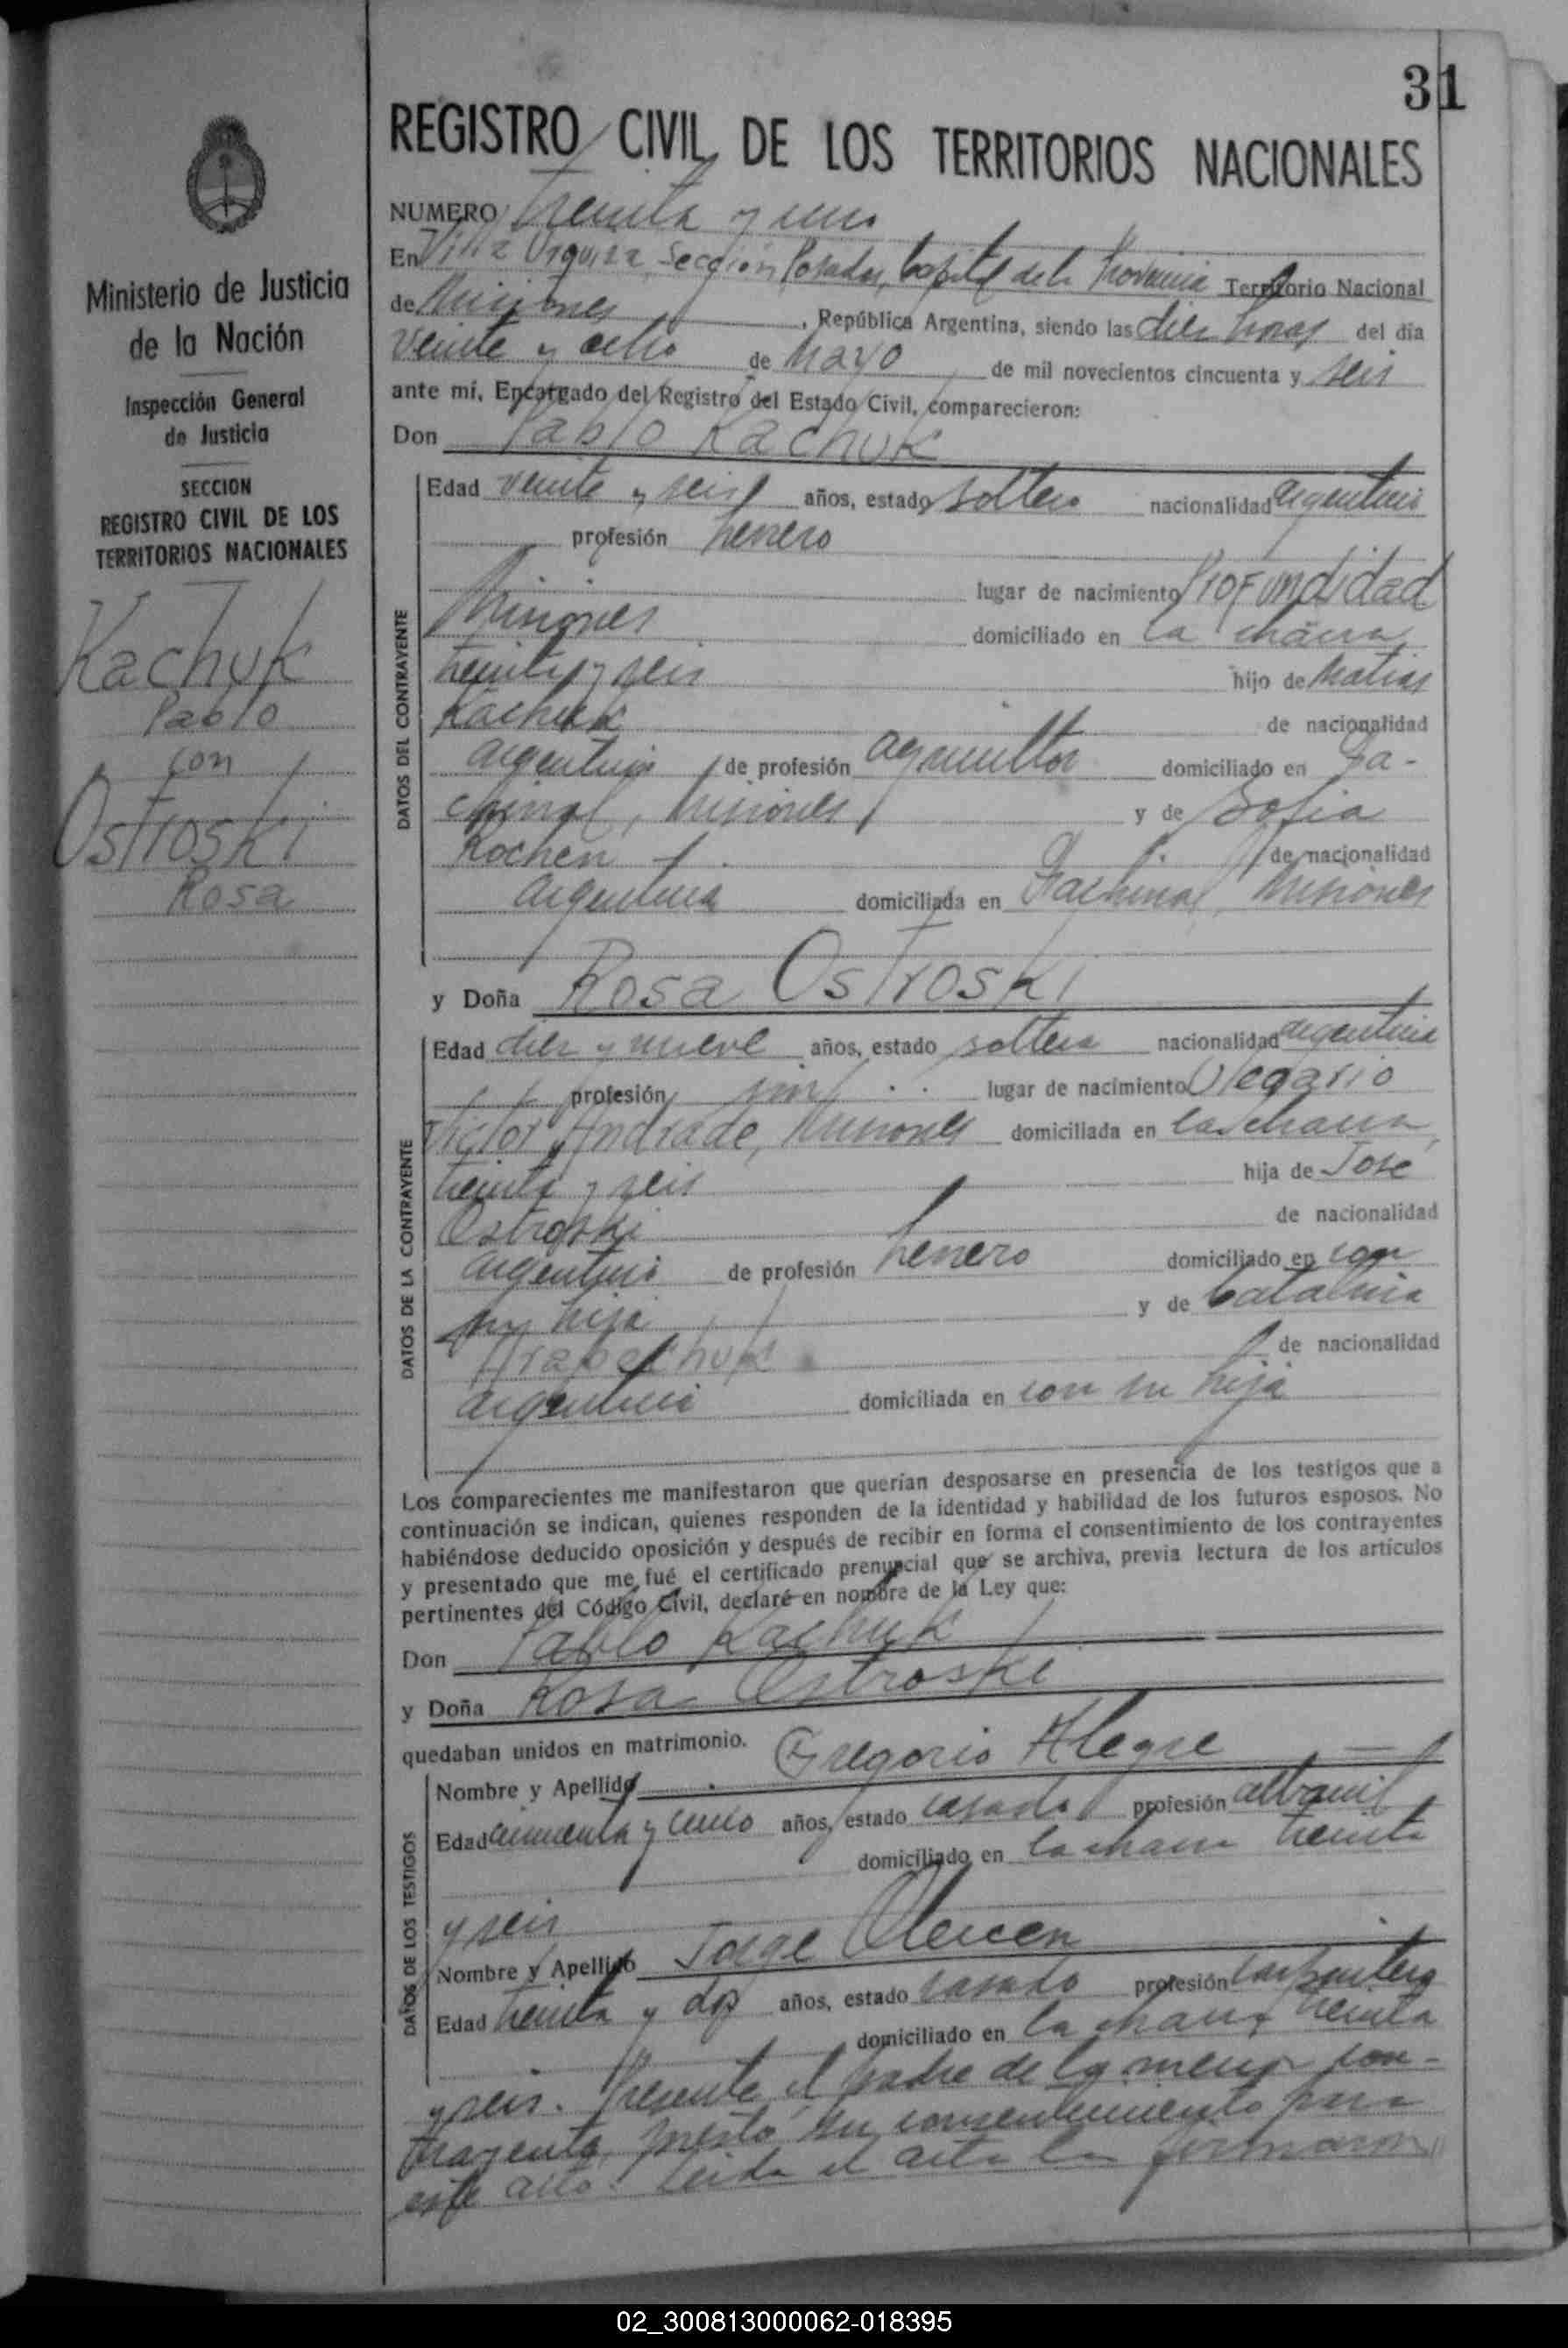 31
REGISTRO CIVIL DE LOS TERRITORIOS NACIONALES
Ministerio de Justicia
de la Nación
Inspección General
de Justicia
SECCION
REGISTRO CIVIL DE LOS
TERRITORIOS NACIONALES
Kachuk
Pablo
con
Ostroski
Rosa
NUMERO treinta y uno
En Villa Urquiza Sección Posadas, Capital de la Provincia Territorio Nacional
de Misiones, República Argentina, siendo las diez horas del día
veinte y ocho de Mayo de mil novecientos cincuenta y seis
ante mí, Encargado del Registro del Estado Civil, comparecieron:
Don Pablo Kachuk
DATOS DEL CONTRAYENTE
Edad veinte y seis años, estado soltero nacionalidad argentino
profesión herrero
lugar de nacimiento Profundidad
Misiones domiciliado en la chacra
treinta y seis hijo de Matias
Kachuk de nacionalidad
argentino de profesión agricultor domiciliado en Fa-
chinal, Misiones y de Sofia
Kochen de nacionalidad
argentina domiciliada en Fachinal, Misiones
y Doña Rosa Ostroski
DATOS DE LA CONTRAYENTE
Edad diez y nueve años, estado soltera nacionalidad argentina
profesión sin lugar de nacimiento Olegario
Victor Andrade, Misiones domiciliada en la chacra,
treinta y seis hija de José
Ostroski de nacionalidad
argentino de profesión herrero domiciliado en con
su hija y de Catalina
de nacionalidad
argentina domiciliada en con su hija
Los comparecientes me manifestaron que querían desposarse en presencia de los testigos que a
continuación se indican, quienes responden de la identidad y habilidad de los futuros esposos. No
habiéndose deducido oposición y después de recibir en forma el consentimiento de los contrayentes
y presentado que me fué el certificado prenupcial que se archiva, previa lectura de los artículos
pertinentes del Código Civil, declaré en nombre de la Ley que:
Don Pablo Kachuk
y Doña Rosa Ostroski
quedaban unidos en matrimonio.
DATOS DE LOS TESTIGOS
Nombre y Apellido Gregorio Alegre
Edad cincuenta y cinco años, estado casado profesión albanil
domiciliado en la chacra treinta
y seis
Nombre y Apellido Jorge
Edad treinta y dos años, estado casado profesión carpintero
domiciliado en la chacra treinta
y seis. Presente el padre de la menor con-
trayente, prestó su consentimiento para
este acto. Leida el acta la firmaron
02_300813000062-018395